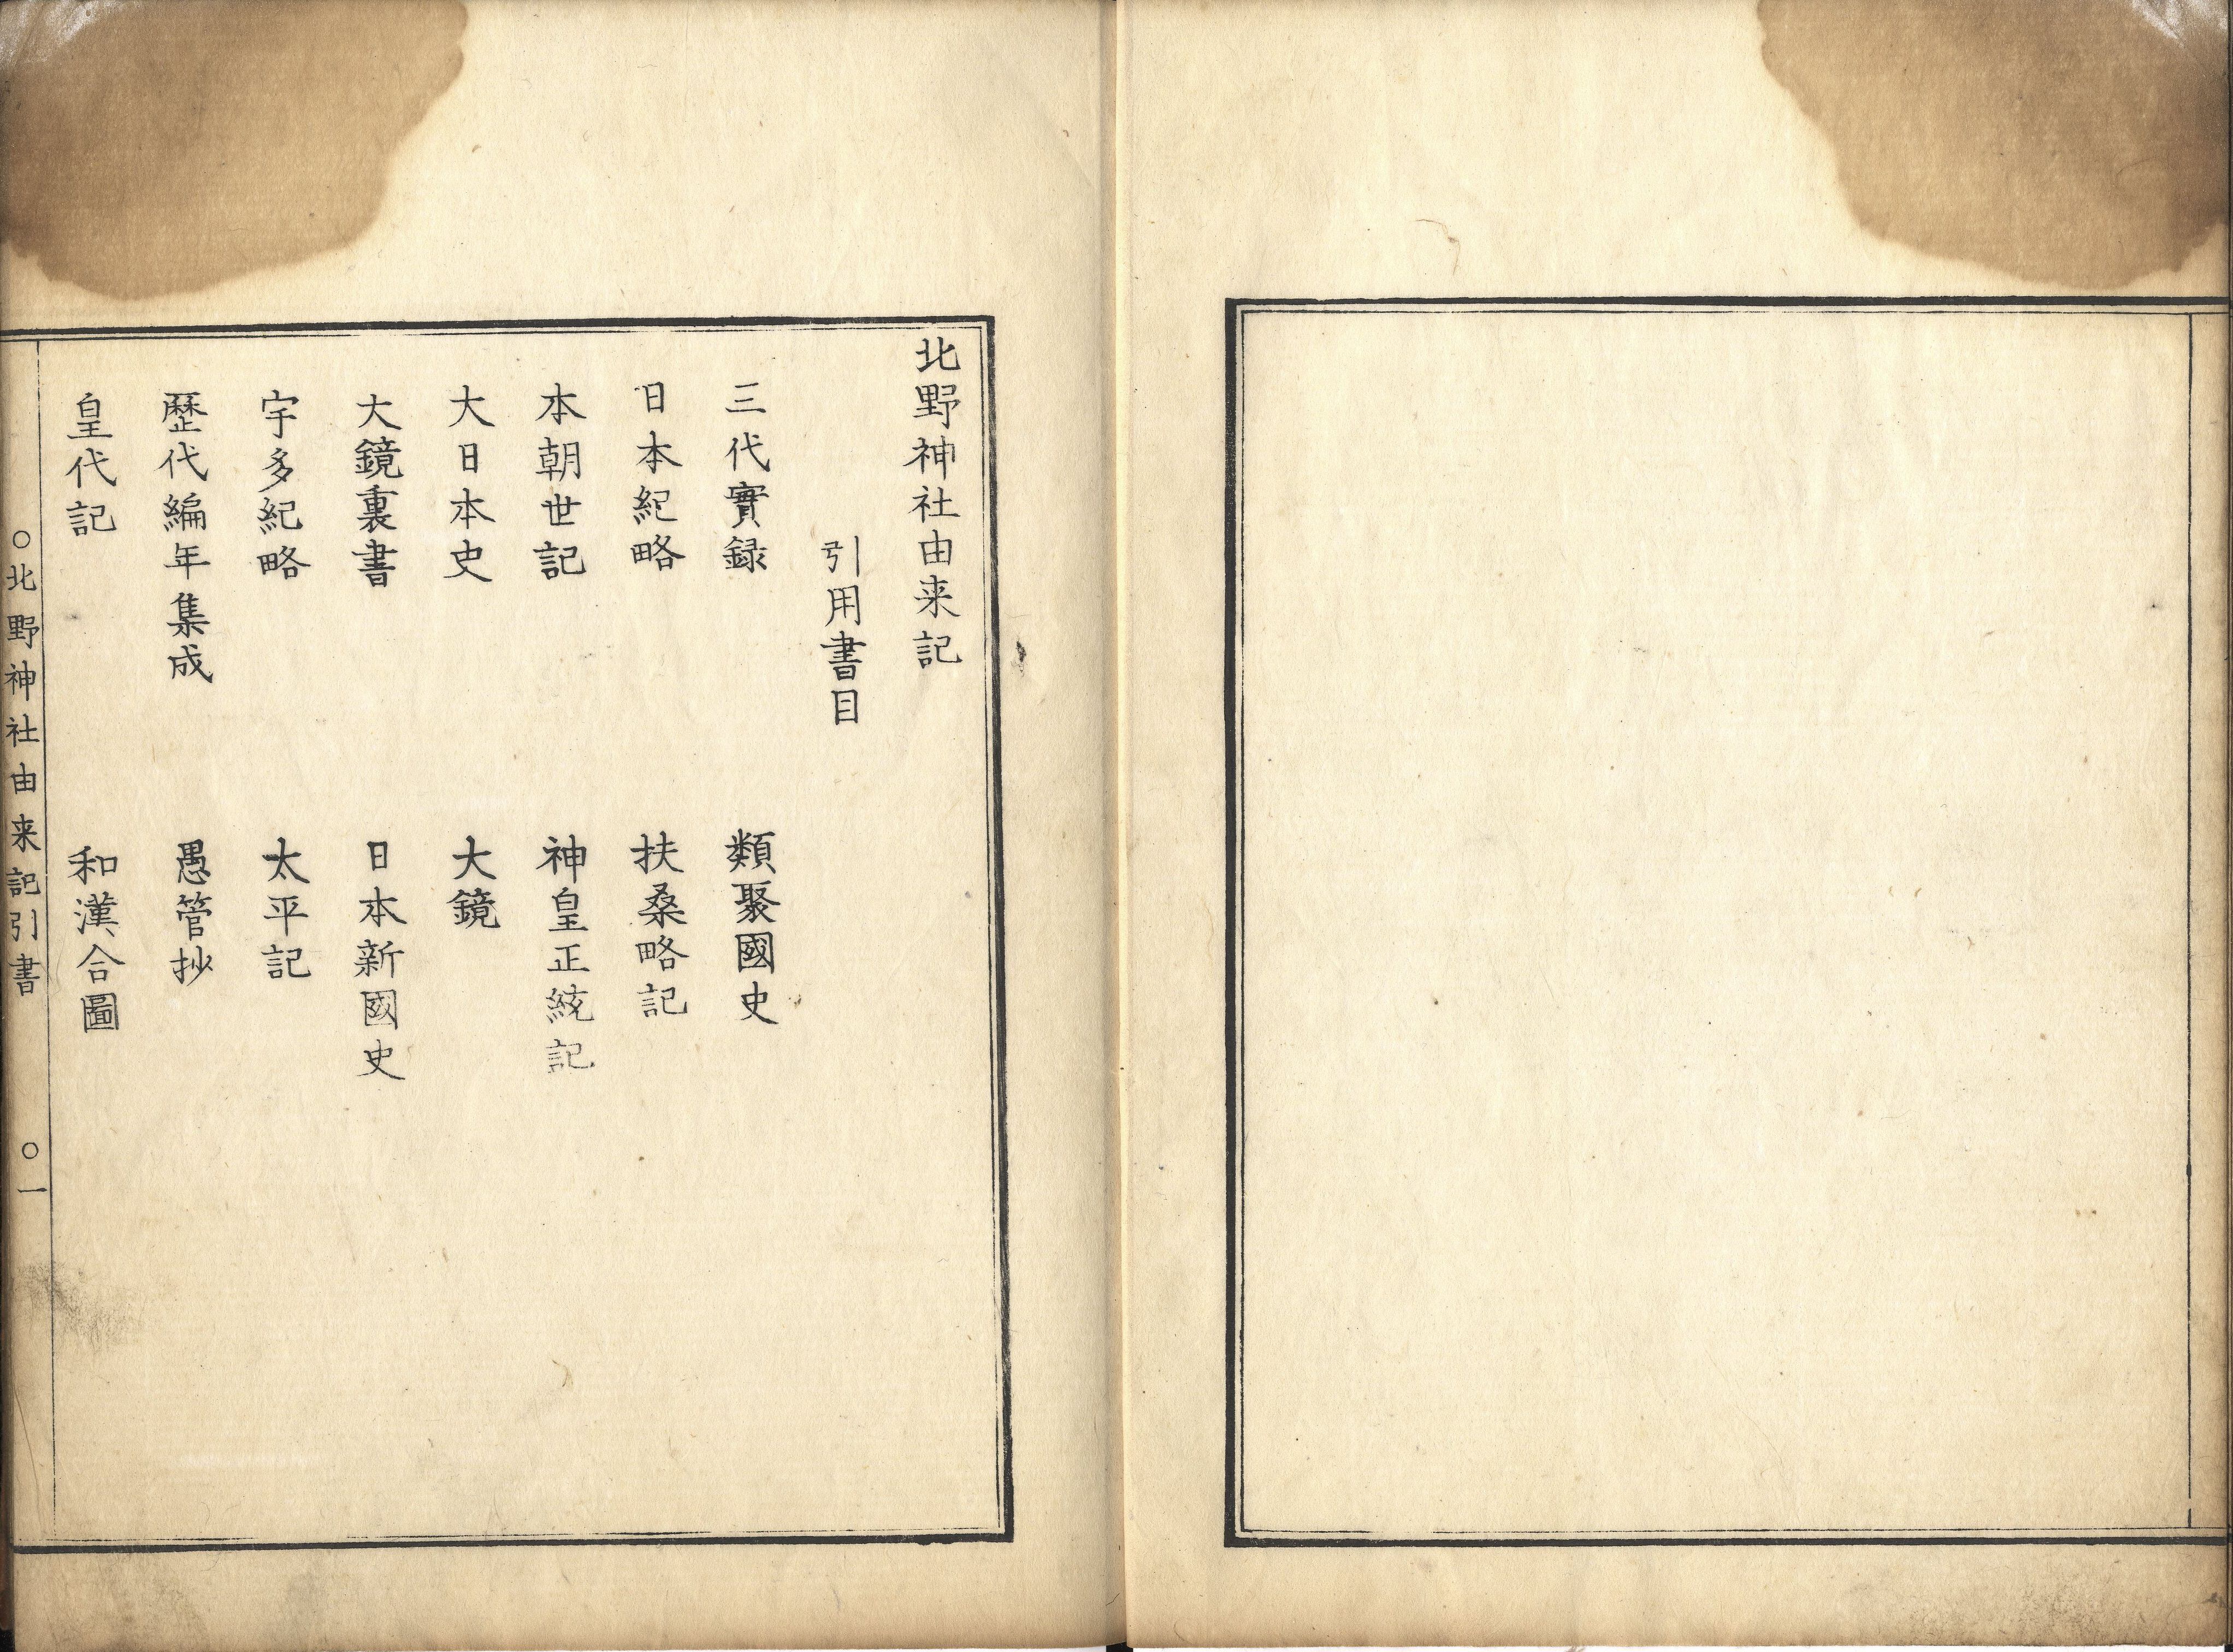 北野神社由来記
引用書目
三代實録　類聚國史
日本紀略　扶桑略記
本朝世記　神皇正統記
大日本史　大鏡
大鏡裏書　日本新國史
宇多紀略　太平記
歴代編年集成　愚管抄
皇代記　和漢合圖
○北野神社由来記引書　○一